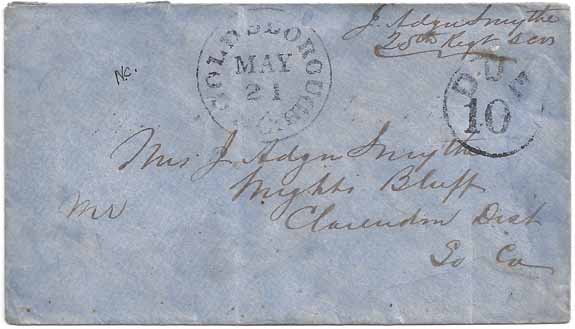 J. Adgn Smythe
25th Regt S CVs
GOLDSBOROUGH
N.C.
MAY
21
N.C.
DUE
10
Mrs J. Adgn Smythe
Wrights Bluff
Clarendon Dist
So Ca